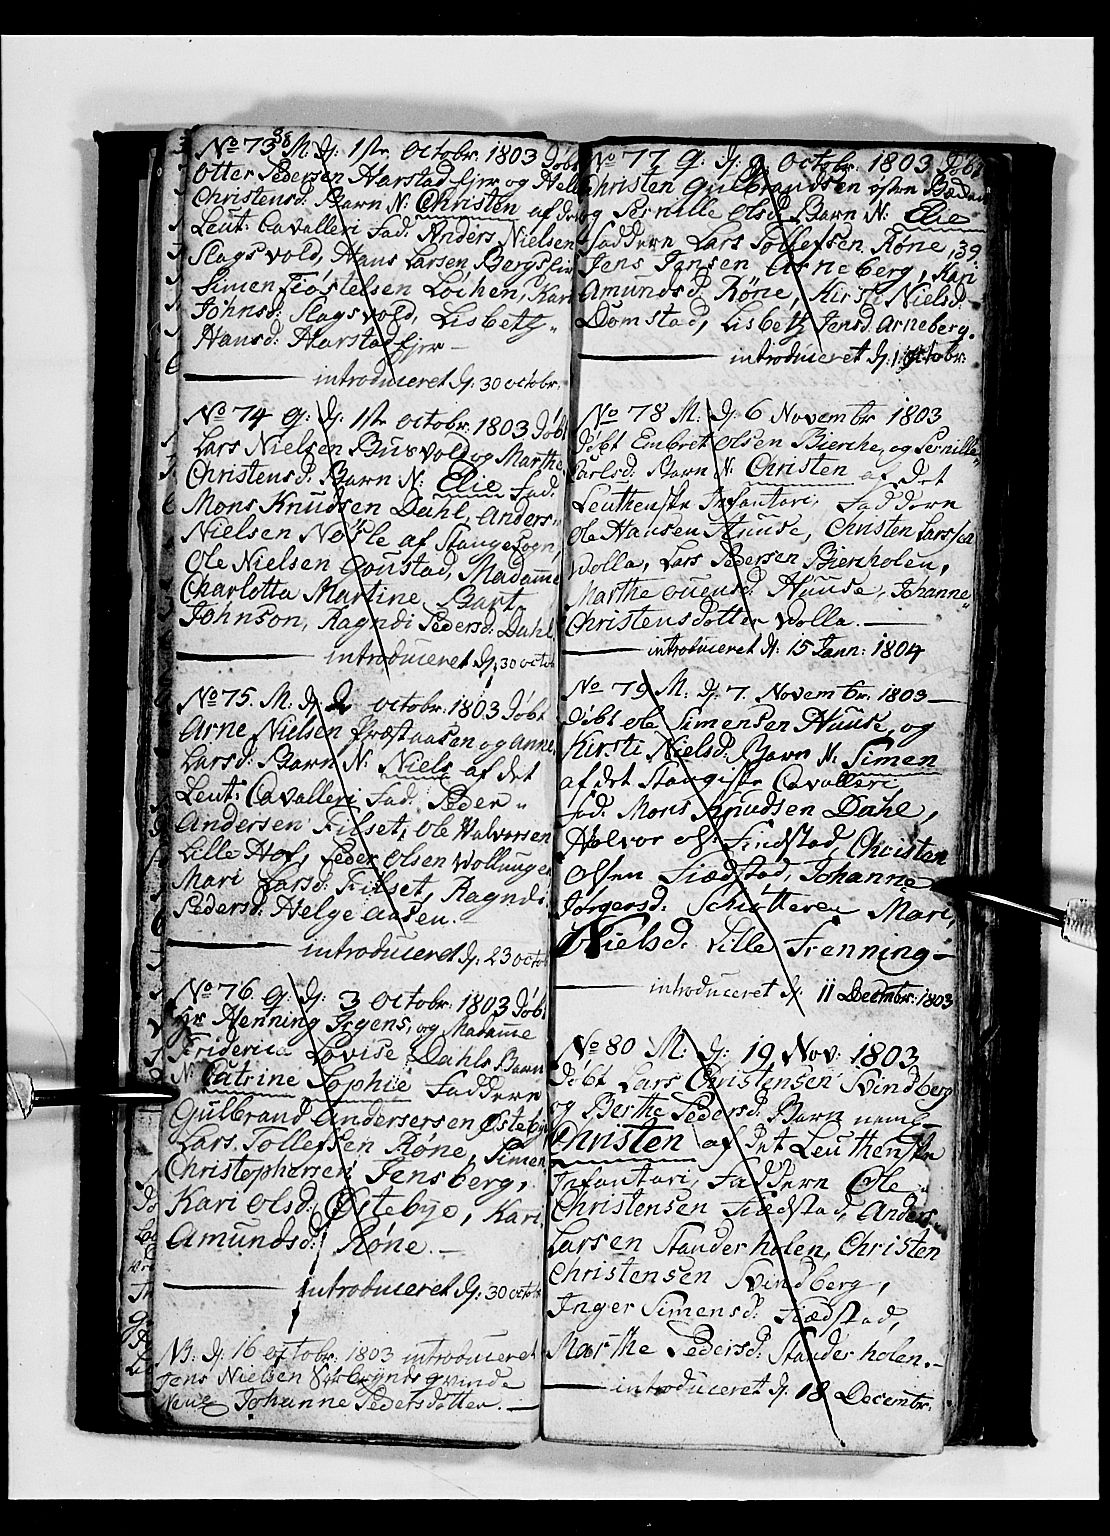 38
No 73 M. D: 1ste octobr. 1803 Døbt
Otter Pedersen Harstad fjer og Hell
Christensd: Barn N: Christen af det
Leut: Cavalleri Fad: Anders Nielsen
Slagsvold, Hans Larsen Bergsfier
Simen Fiøstelsen Løchen, Kari
Johnsd: Slagsvold, Lisbeth
Hansd: Harstad fjer —
introduceret d: 30 octobr.
No 74 q: D: 1ste octobr. 1803 Døbt
Lars Nielsen Busvold og Marthe
Christensd: Barn N: Elie Fad:
Mons Knudsen Dahl, Anders
Nielsen Nøsle af Stange Sogn,
Ole Nielsen Goustad, Madamme
Charlotta Martine Bart
Johnson, Ragndi Pedersd: Dahl
introduceret d: 30 octob
No 75. M. D: 2 octobr. 1803 Døbt
Arne Nielsen Præstaasen og Anne
Larsd: Barn N: Niels af det
Leut: Cavalleri Fad: Peder
Andersen Filset, Ole Halvorsen
Lille Hof, Peder Olsen Wollunge
Mari Larsd: Filset, Ragndi
Pedersd: Helgeaasen.
introduceret d: 23 octob
No 76 q: D: 3 octobr. 1803 Døbt
Hr Henning Irgens, og Madamme
Friderica Lovise Dahls Barn
N: Catrine Sophie Faddere
Gulbrand Andersersen Østebye
Lars Tollefsen Røne, Simen
Christophersen Jensberg,
Kari Olsd: Østebye, Kari
Amundsd: Røne. —
introduceret d: 30 octobr
NB. D: 16 octobr. 1803 introduceret
Jens Nielsen qvinde
Johanne Pedersdotter. —
No 77 q: D: 9 octobr. 1803 Døbt
Christen Gulbrandsen
og Pernille Olsd: Barn N: Elie
Faddern Lars Tollefsen Røne, 39
Jens Jensen Arneberg, Kari
Amundsd: Røne, Kirsti Nielsd:
Domstad, Lisbeth Jensd: Arneberg.
introduceret d: octobr:
No 78 M: D: 6 Novembr 1803
Døbt Embret Olsen Bierche, og Pernille
Carlsd: Barn N: Christen af det
Leuthenske Infantari, Faddern
Ole Hansen Huuse, Christen Larssen
Wolla, Lars Pedersen Biercholen,
Marthe Ouensd: Huuse, Johanne
Christensdotter Wolla. —
introduceret d: 15 Jann: 1804
No 79 M: D: 7. Novembr. 1803 —
Døbt Ole Simensen Huuse, og
Kirsti Nielsd: Barn N: Simen
af det Stangiske Cavalleri
Fad: Mons Knudsen Dahl,
Halvor Ols: Findstad, Christen
Olsen Fiædstad, Johanne
Jørgersd: Schøtteren Mari,
Nielsd: Lille Frenning —
introduceret d: 11 Decembr: 1803
No 80 M: D: 19 Nov: 1803
Døbt Lars Christensen Svindberg
og Berthe Pedersd: Barn neml:
Christen af det Leuthenske
Infantari, Faddern Ole
Christensen Findstad, Anders
Larsen Stauderholen, Christen
Christensen Svindberg,
Inger Simensd: Fiædstad,
Marthe Pedersd: Stauderholen. —
introduceret d. 18 Decembr.